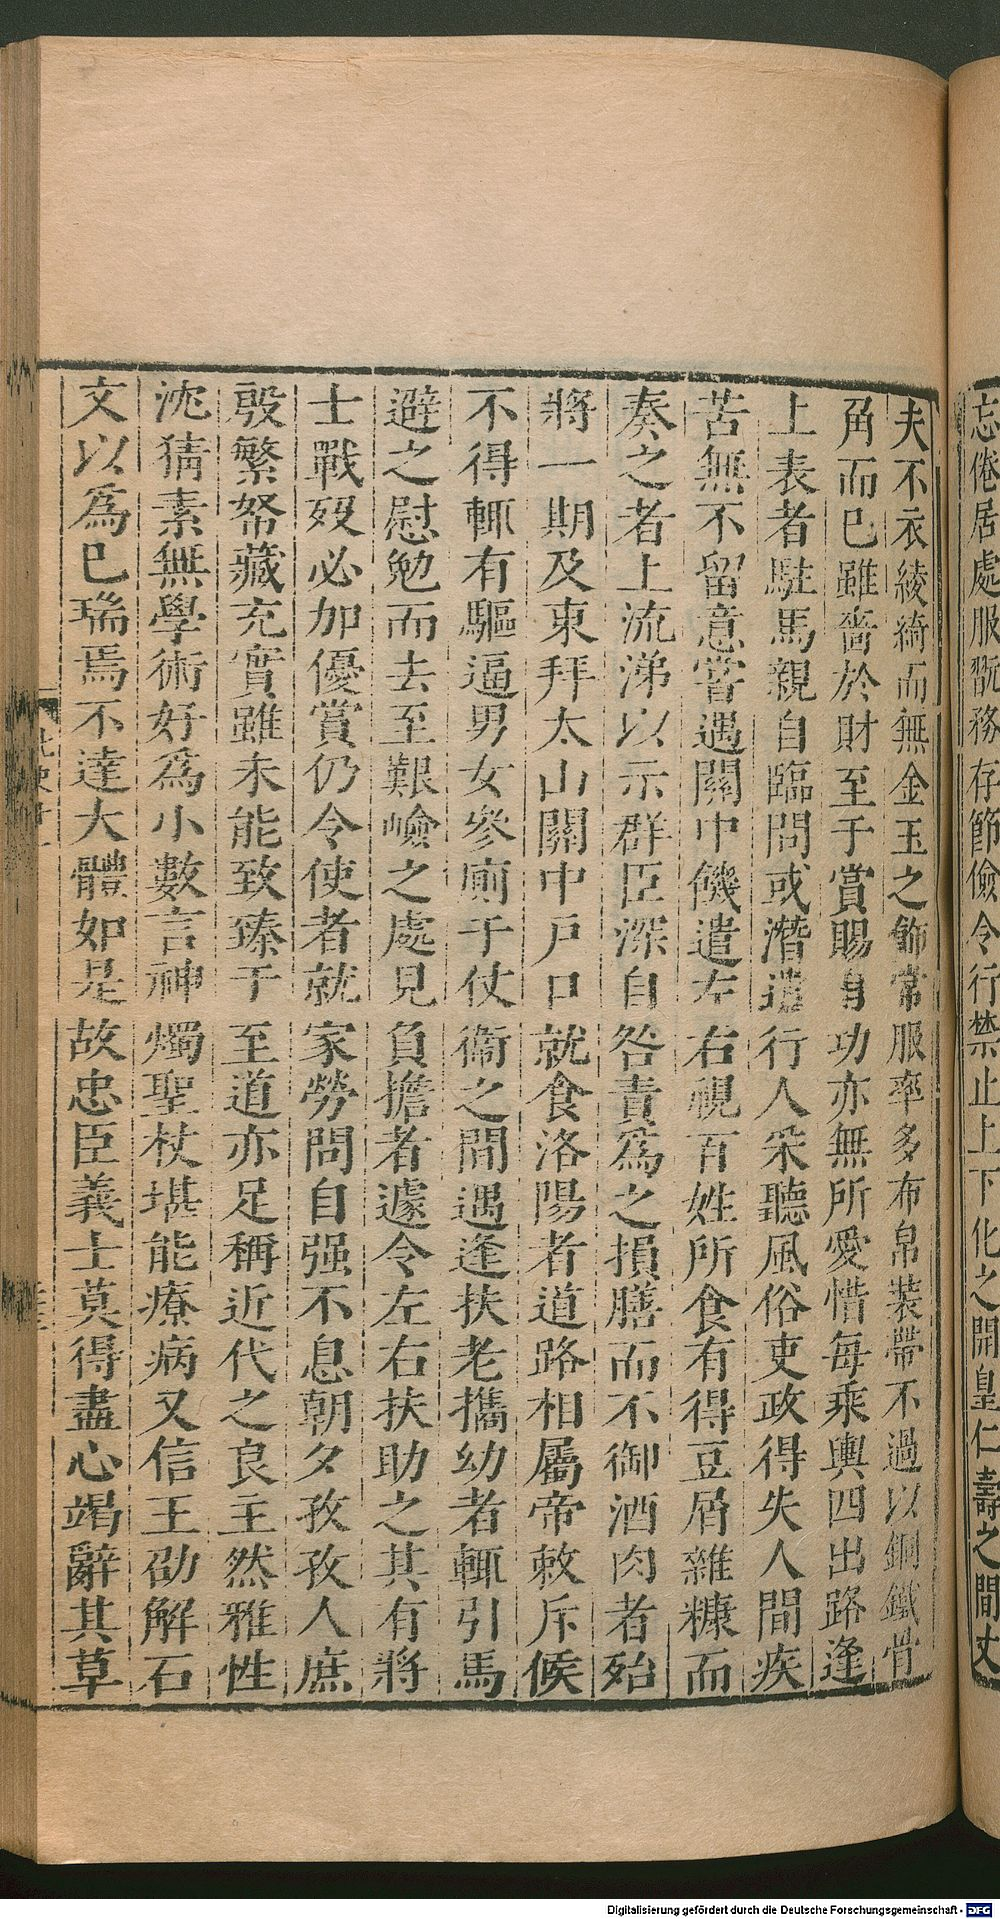 忘倦居處服翫務存節儉令行禁止上下化之開皇仁壽之間丈
夫不衣綾綺而無金玉之飾常服率多布帛裝帶不過以銅鐵骨
角而巳雖嗇於財至于賞賜有功亦無所愛惜每乘輿四出路逢
上表者駐馬親自臨問或潛遣行人采聽風俗吏政得失人間疾
苦無不留意嘗遇關中饑遣左右視百姓所食有得豆屑雜糠而
奏之者上流涕以示群臣深自咎責爲之損膳而不御酒肉者殆
將一期及東拜太山關中戸口就食洛陽者道路相屬帝敕斥候
不得輒有驅逼男女參廁于仗衞之間遇逢扶老攜幼者輒引馬
避之慰勉而去至艱嶮之處見負擔者遽令左右扶助之其有將
士戰歿必加優賞仍令使者就家勞問自强不息朝夕孜孜人庶
殷繁帑藏充實雖未能致臻于至道亦足稱近代之良主然雅性
沈猜素無學術好爲小數言神燭聖杖堪能療病又信王劭解石
文以爲巳瑞焉不達大體如是故忠臣義士莫得盡心竭辭其草
Digitalisierung gefördert durch die Deutsche Forschungsgemeinschaft - DFG